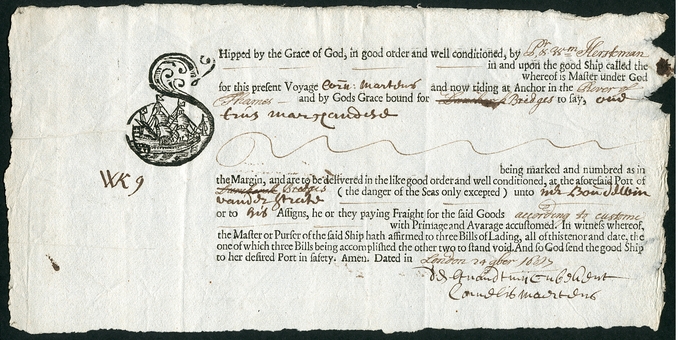 SHipped by the Grace of God, in good order and well conditioned, by Pr. & Wm Herseman
in and upon the good Ship called the
whereof is Master under God
for this present Voyage Corn: Martens and now riding at Anchor in the River of
Thames and by Gods Grace bound for Bridges to say, one
trus marchandise
being marked and numbred as in
the Margin, and are to be delivered in the like good order and well conditioned, at the aforesaid Port of
WK 9
Bridges (the danger of the Seas only excepted) unto mr Boudewin
vander
or to his Assigns, he or they paying Fraight for the said Goods according to custome
with Primage and Avarage accustomed. In witness whereof,
the Master or Purser of the said Ship hath affirmed to three Bills of Lading, all of this tenor and date, the
one of which three Bills being accomplished the other two to stand void. And so God send the good Ship
to her desired Port in safety. Amen. Dated in London 29 9ber
Cornelis Maertens